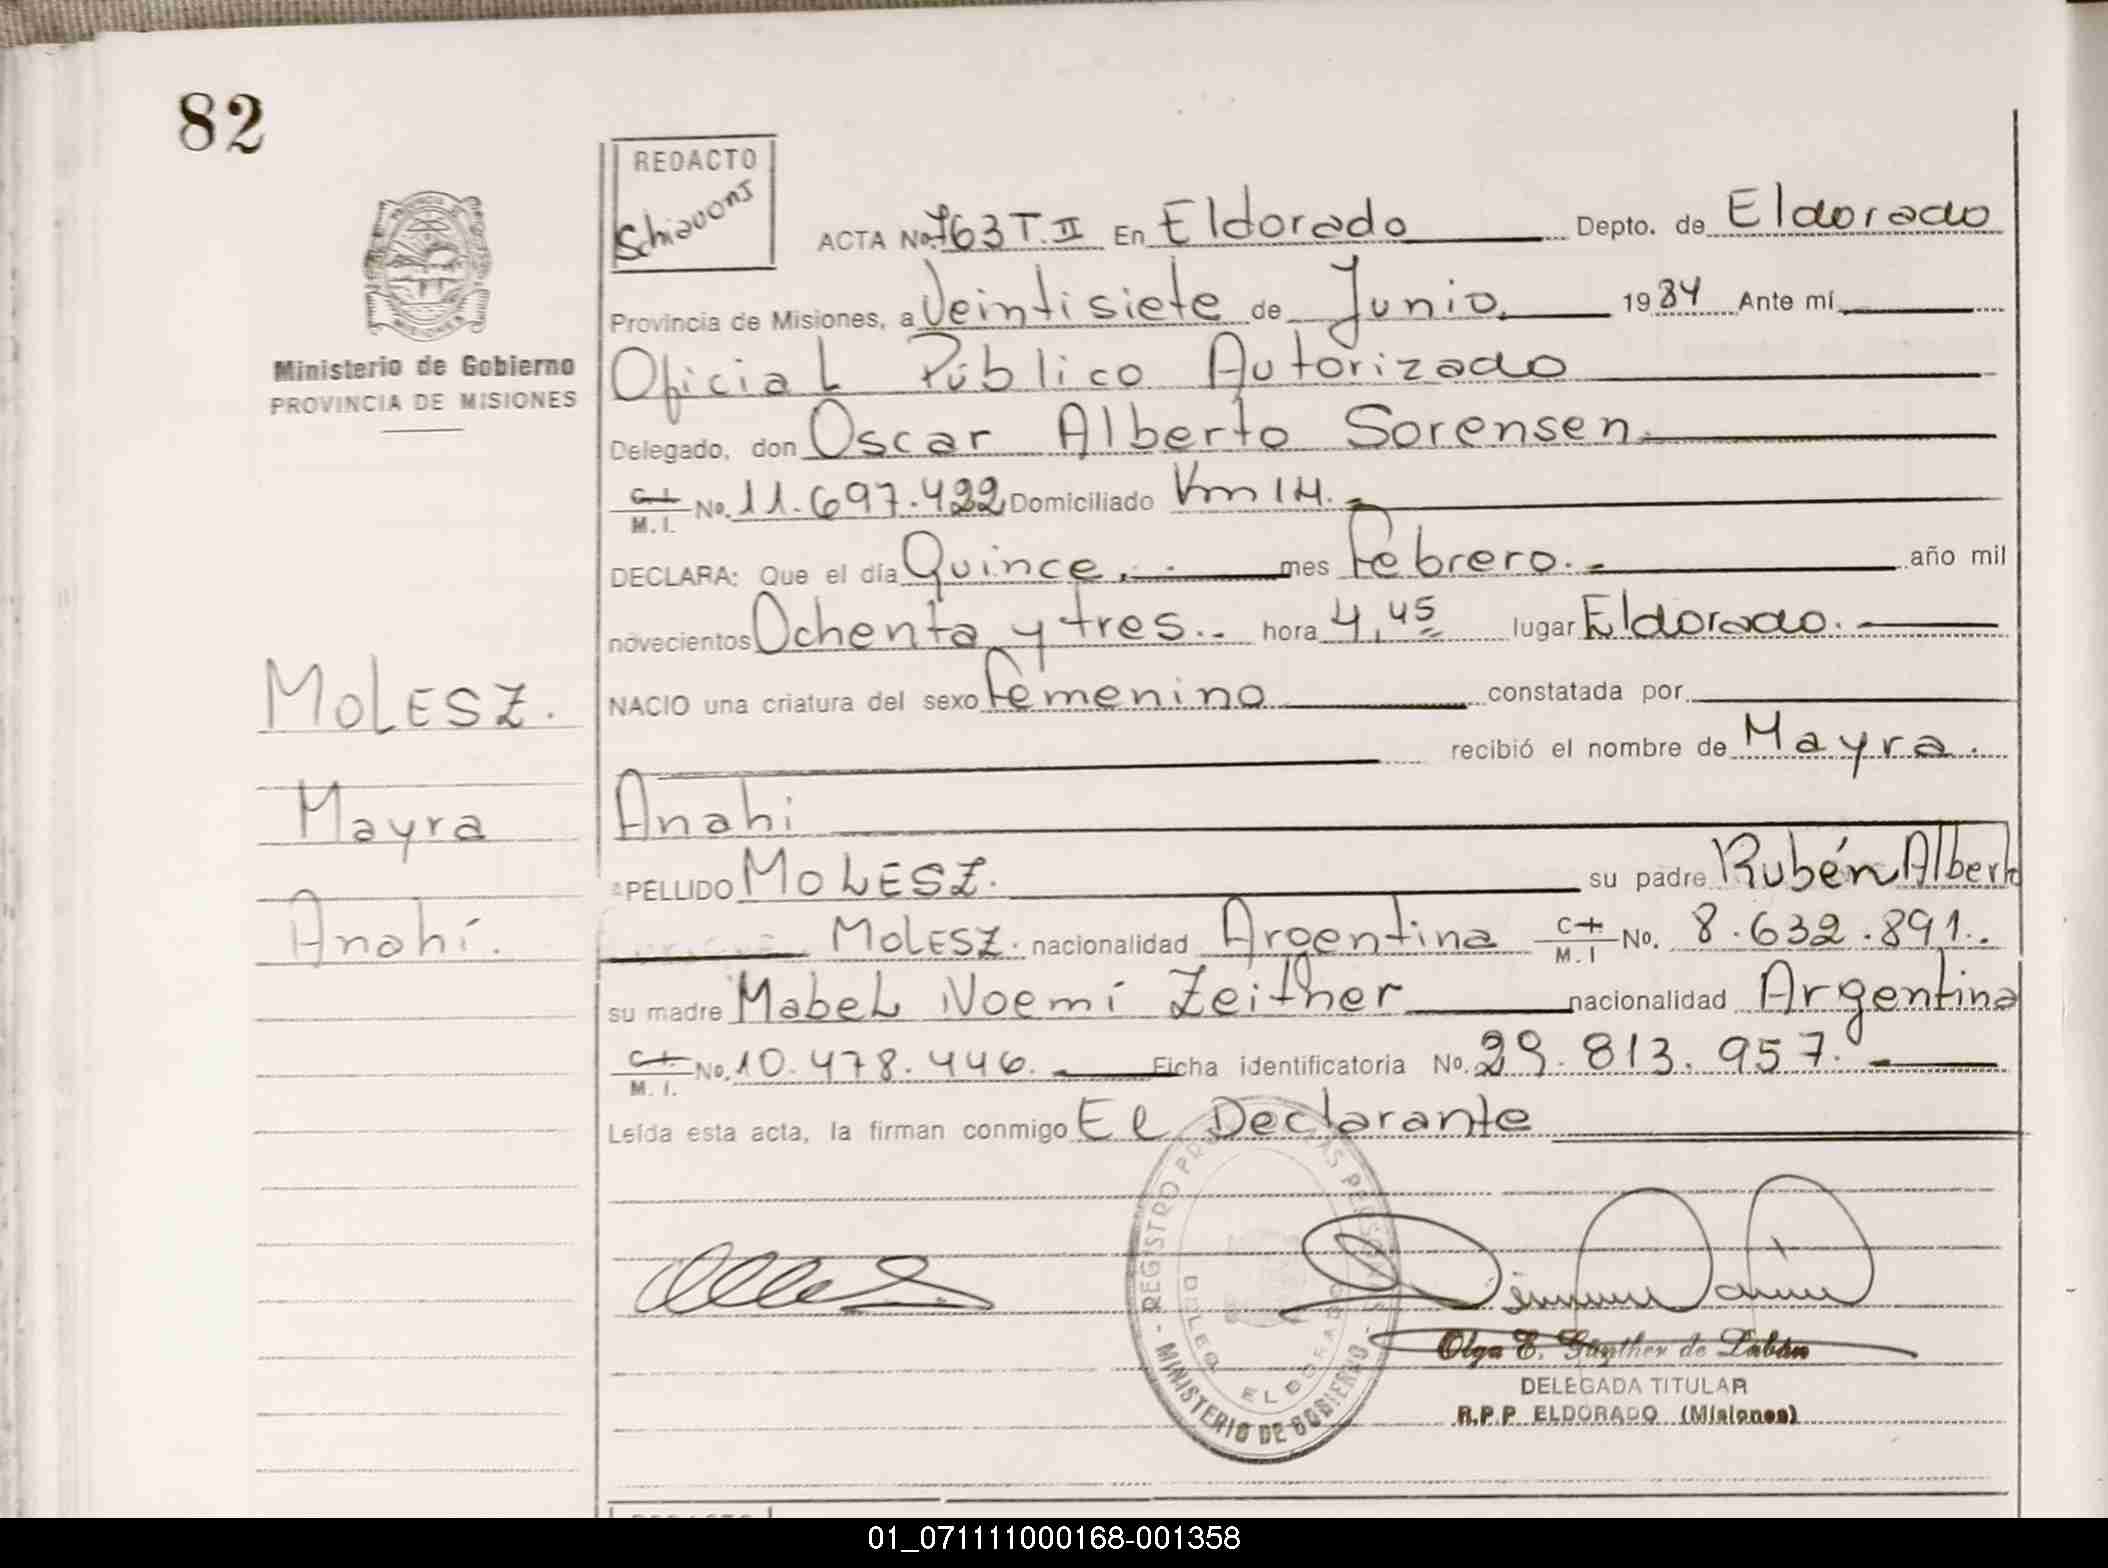 82
REDACTO
Schiavoni
ACTA No. 763 T. II En Eldorado Depto. de Eldorado
Provincia de Misiones, a Veintisiete de Junio. 1984 Ante mí
Oficial Público Autorizado
Delegado, don Oscar Alberto Sorensen.
C.I. M.I. No. 11.697.422 Domiciliado Km 14.
DECLARA: Que el día Quince. mes Febrero. año mil
novecientos Ochenta y tres.. hora 4,45 lugar Eldorado.
NACIO una criatura del sexo Femenino constatada por
recibió el nombre de Mayra.
Anahi
APELLIDO MOLESZ. su padre Rubén Alberto
MOLESZ. nacionalidad Argentina C.I. M.I No. 8.632.891..
su madre Mabel Noemí Zeither nacionalidad Argentina
C.I. M.I. No. 10.478.446. Ficha identificatoria No. 29.813.957.
Leída esta acta, la firman conmigo El Declarante
Ministerio de Gobierno
PROVINCIA DE MISIONES
MOLESZ.
Mayra
Anahí.
- REGISTRO PERSONAS - MINISTERIO DE GOBIERNO
ELDORADO
Olga E. Günther de Labán
DELEGADA TITULAR
R.P.P. ELDORADO (Misiones)
01_071111000168-001358